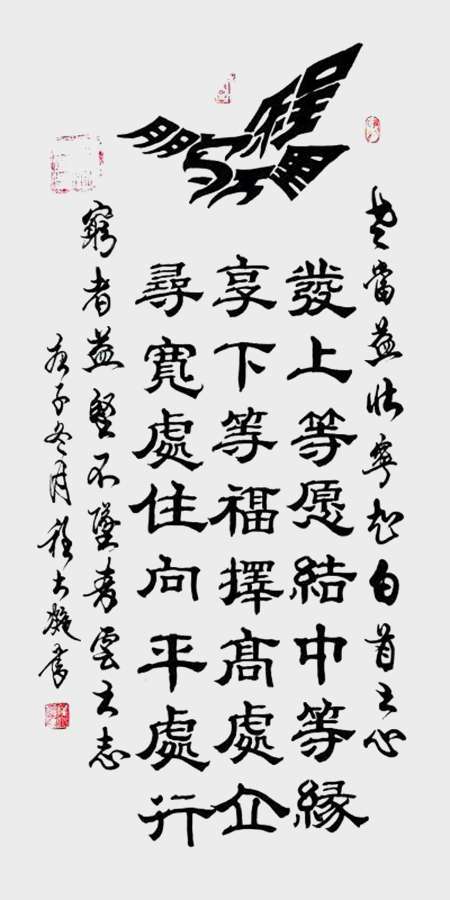 鵬程
老當益壯寧知白首之心
發上等愿結中等緣
享下等福擇高處立
尋寬處住向平處行
窮者益堅不墜青雲之志
庚子冬月程書